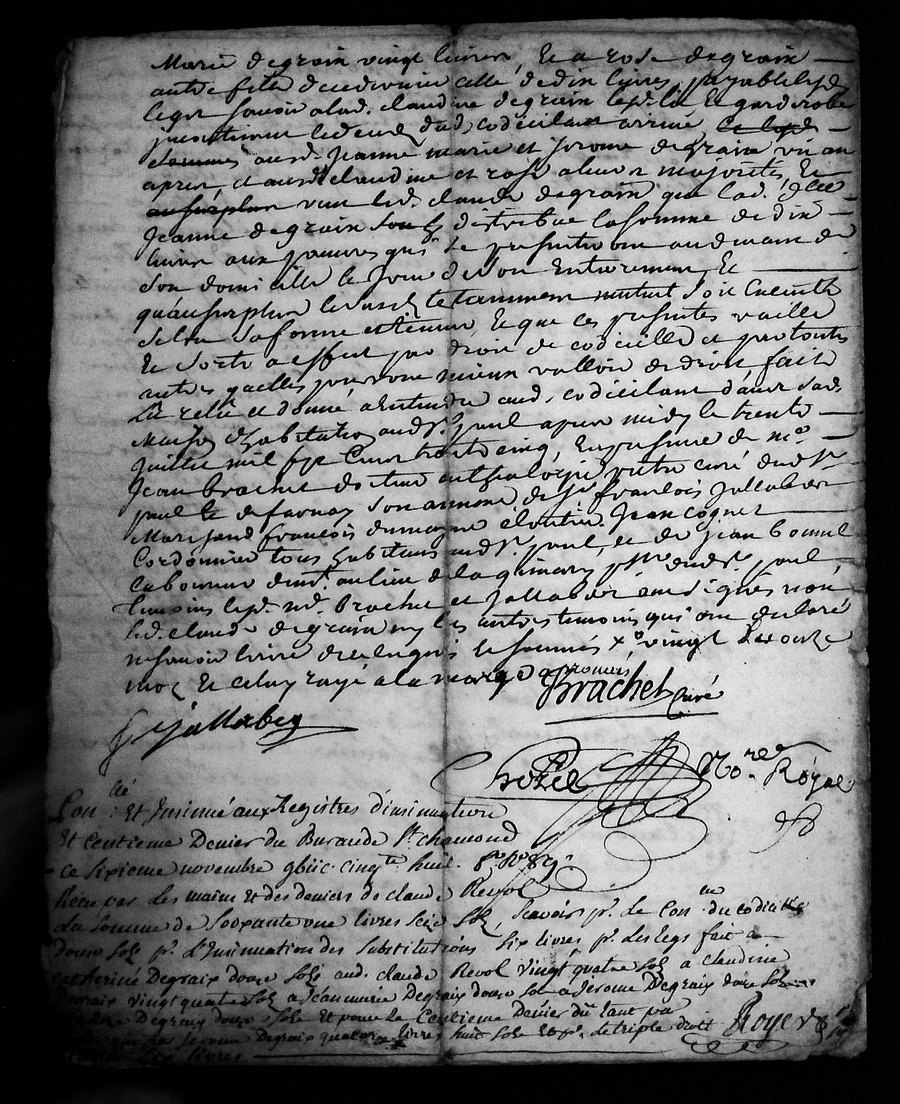 Marie degrain vingt livres, Et a rose degrain
autre fille decedronier celle de dix livres, payables lesd.
legs savoir a lad. claudine degrain lesd. lit Et garderobe
du deces dud. codicilant arrivé
sommes ausd. Jeanne marie et jerome degrain un an
apres, et ausd. claudine et rose a leur majorités, Et
au surplus veut led. claude degrain que lad.
Jeanne degrain distribue la somme de dix
livres aux pauvres qui se presenteront au devant de
son domicille le jour de son Enterrement, Et
qu'au surplus le susd. testamment mutuel soit Executé
selon sa forme et teneur, Et que ces presentes vaille
Et sorte a effect par droit de codicille et par toutes
autres qu'elles pourront mieux valloir de droit, fait
Lu relu et donné a Entendre aud. codicilant dans sad.
Maison d'habitation aud. St. paul apres midy le trente
Juillet mil sept Cent trente cinq, En presence de me.
Jean brachet docteur en theologie pretre curé dud. St.
paul de farnay son annexe, de Sr. francois Jallabert
Marchand francois dumayne cloutier Jean Cognet
Cordonnier tous habitans aud. St. paul, et de Jean bonnel
Laboureur demt. au lieu de la psse. dud. St. paul
temoins lesd. brachet et Jallabert ont signés non
led. claude degrain ny les autres temoins qui ont declaré
ne savoir Ecrire de ce Enquis Et sommés vingt
mot Et celuy rayé a la marge
Brachet Curé
Jallabey
Nore. Royal
Con.lé Et Insinué aux Registres d'insinuation
Et centieme Denier du Bureau de St. chamond
ce sixieme novembre gbiic cinqte. huit
Receu par les mains et des deniers de claude Revol
La somme de Soixante une livres seize sols, scavoir pr. Le Con.lle du codicille
douze sols pr. L'Insinuation des Substitutions six livres, pr. Les legs fait a
catherine Degraix douze sols aud. claude Revol vingt quatre sols a claudine
Degraix vingt quatre sols a Jeanmarie Degraix douze sols a Jerome Degraix douze sols
Degraix douze sols Et pour le Centieme Denier dû tant par
Jerome Degraix quatre livres huit sols Et pr. le triple droit
Royer
livres